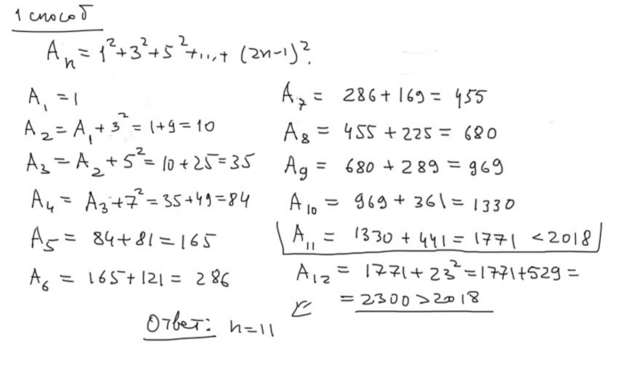 1 способ
Aₙ = 1² + 3² + 5² + ... + (2n-1)².
A₁ = 1
A₂ = A₁ + 3² = 1+9 = 10
A₃ = A₂ + 5² = 10 + 25 = 35
A₄ = A₃ + 7² = 35 + 49 = 84
A₅ = 84 + 81 = 165
A₆ = 165 + 121 = 286
A₇ = 286 + 169 = 455
A₈ = 455 + 225 = 680
A₉ = 680 + 289 = 969
A₁₀ = 969 + 361 = 1330
A₁₁ = 1330 + 441 = 1771 < 2018
A₁₂ = 1771 + 23² = 1771 + 529 =
= 2300 > 2018
Ответ: n = 11